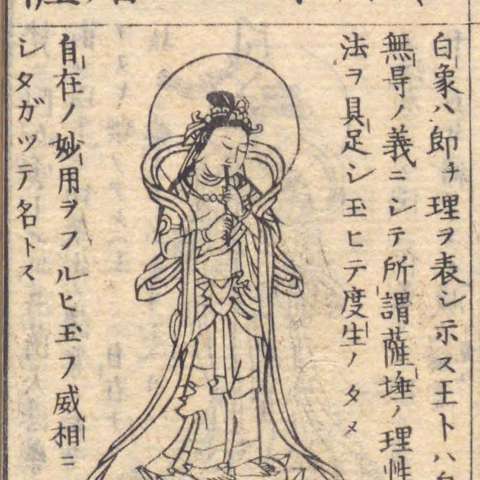 白象ハ即チ理ヲ表シ示ス王トハ自
無导ノ義ニシテ所謂薩埵ノ理性
法ヲ具足シ玉ヒテ度生ノタメ
自在ノ妙用ヲフルヒ玉フ威相ニ
シタガツテ名トス